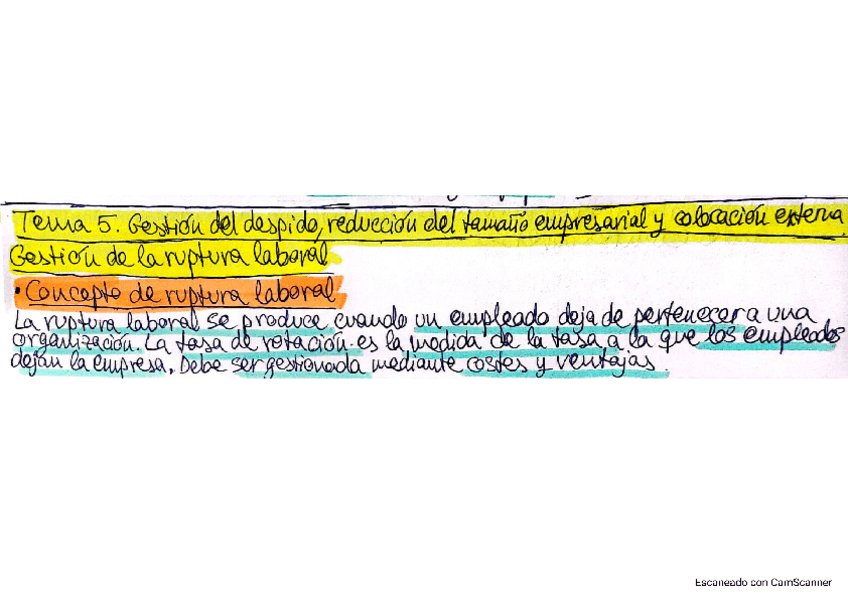 Tema 5. Gestión del despido, reducción del tamaño empresarial y colocación externa
Gestión de la ruptura laboral
· Concepto de ruptura laboral
La ruptura laboral se produce cuando un empleado deja de pertenecer a una
organización. La tasa de rotación es la medida de la tasa a la que los empleados
dejan la empresa. Debe ser gestionada mediante costes y ventajas.
Escaneado con CamScanner